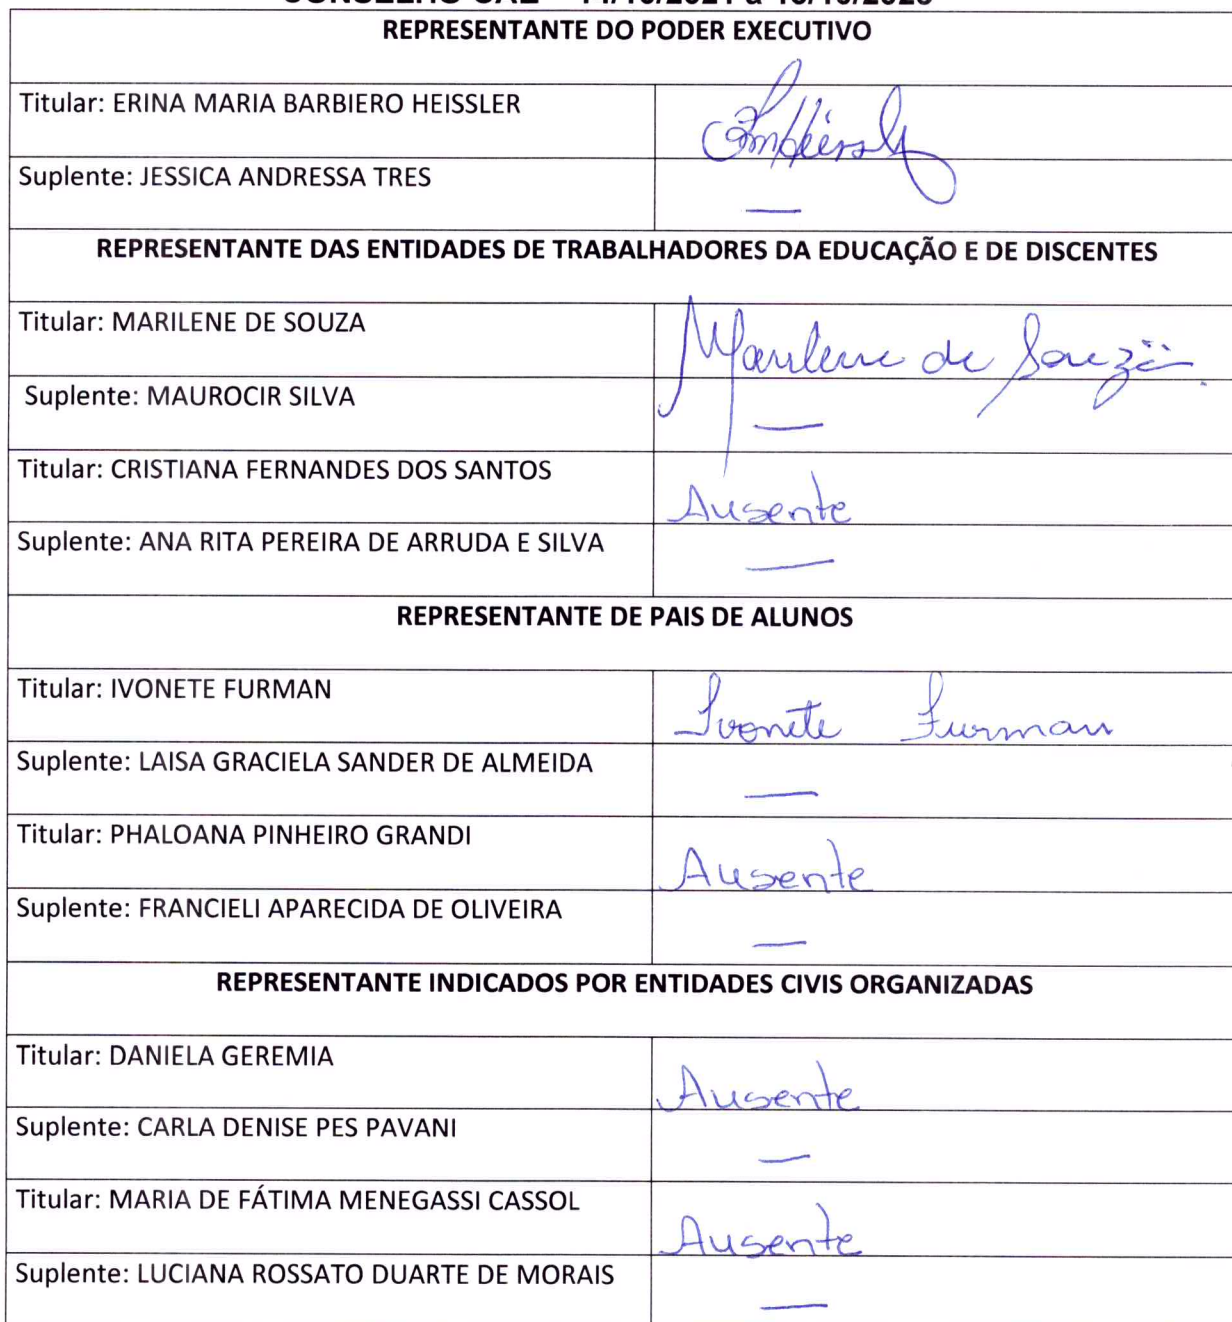 REPRESENTANTE DO PODER EXECUTIVO
Titular: ERINA MARIA BARBIERO HEISSLER
Suplente: JESSICA ANDRESSA TRES
—
REPRESENTANTE DAS ENTIDADES DE TRABALHADORES DA EDUCAÇÃO E DE DISCENTES
Titular: MARILENE DE SOUZA Marilene de Souza
Suplente: MAUROCIR SILVA —
Titular: CRISTIANA FERNANDES DOS SANTOS Ausente
Suplente: ANA RITA PEREIRA DE ARRUDA E SILVA —
REPRESENTANTE DE PAIS DE ALUNOS
Titular: IVONETE FURMAN Ivonete Furman
Suplente: LAISA GRACIELA SANDER DE ALMEIDA —
Titular: PHALOANA PINHEIRO GRANDI Ausente
Suplente: FRANCIELI APARECIDA DE OLIVEIRA —
REPRESENTANTE INDICADOS POR ENTIDADES CIVIS ORGANIZADAS
Titular: DANIELA GEREMIA Ausente
Suplente: CARLA DENISE PES PAVANI —
Titular: MARIA DE FÁTIMA MENEGASSI CASSOL Ausente
Suplente: LUCIANA ROSSATO DUARTE DE MORAIS —